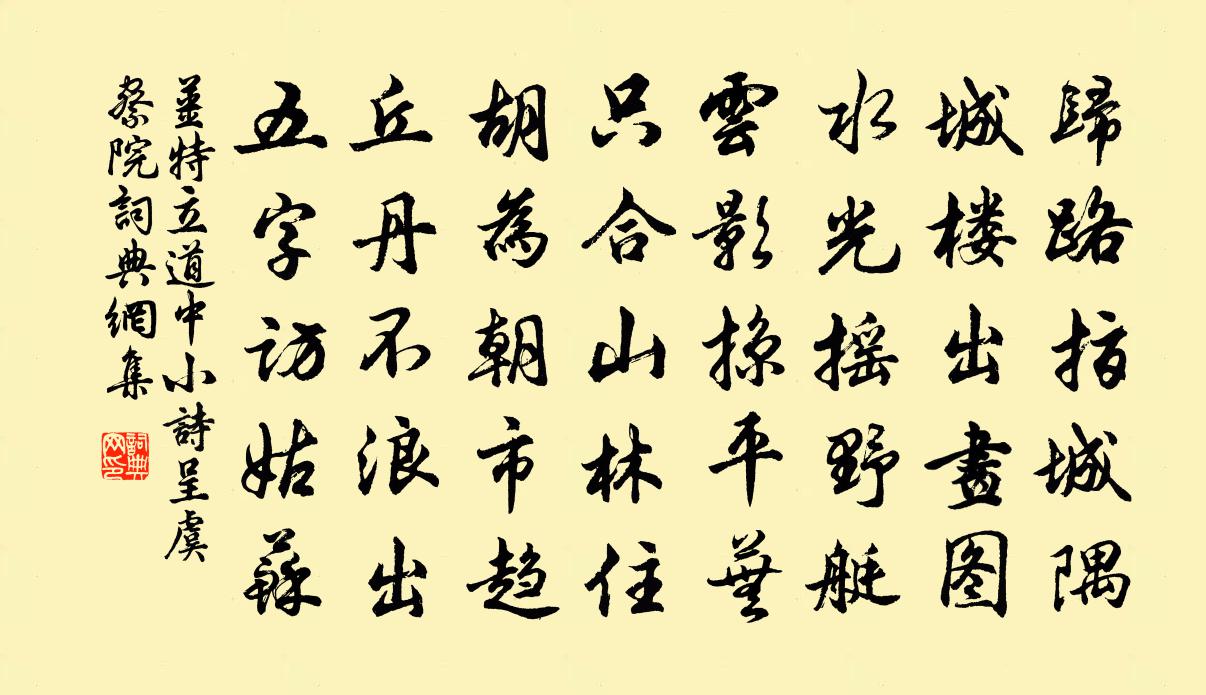 歸路指城隅
城楼出畫图
水光摇野艇
雲影掠平蕪
只合山林住
胡為朝市趋
丘丹不浪出
五字访姑蘇
薑特立道中小詩呈虞
察院詞典網集
詞典
网印